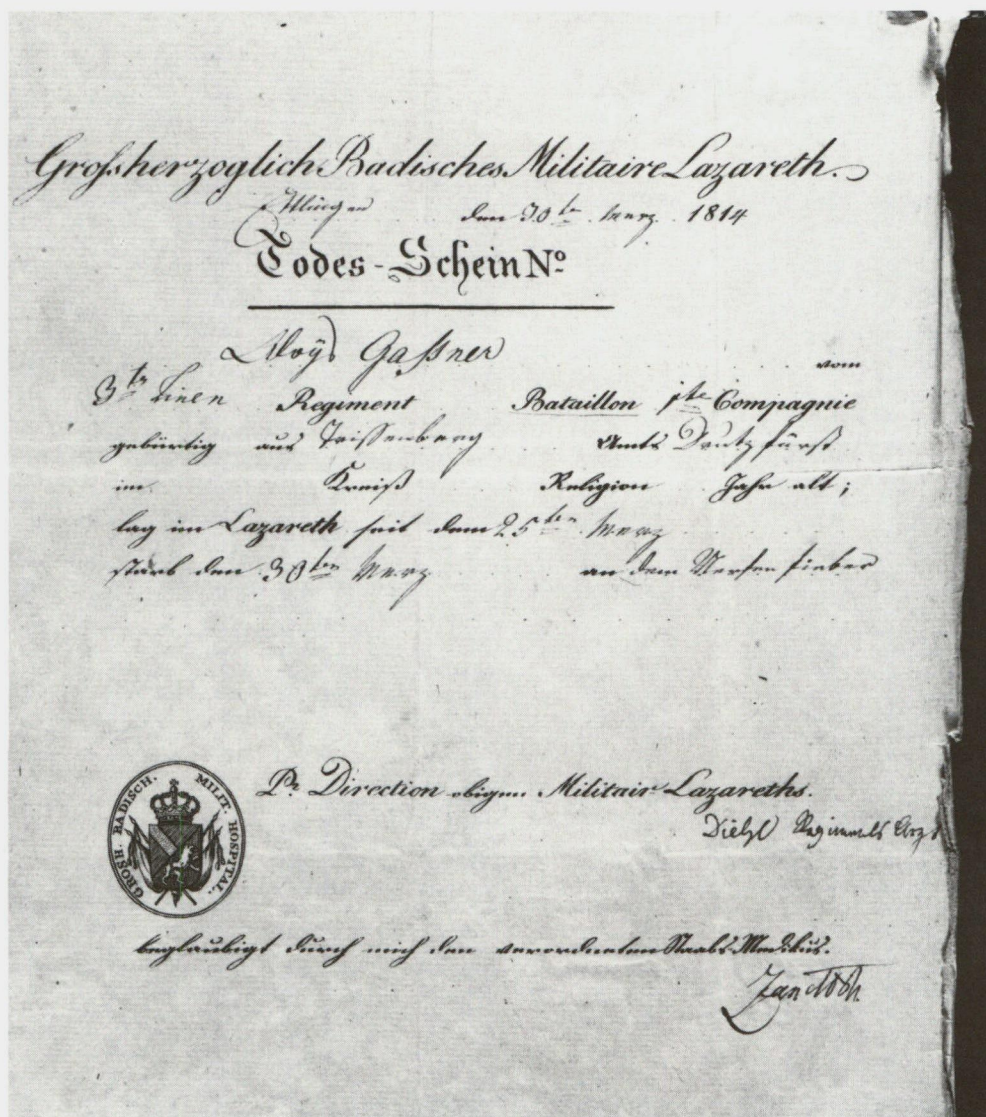 Großherzoglich Badisches Militaire Lazareth.
Ettlingen den 30ten Merz 1814
Todes-Schein No
Aloys Gaßner vom
3ten Linen Regiment Bataillon 1te Compagnie
gebürtig aus Trissenberg Amts
im Kreiß Religion Jahr alt;
lag im Lazareth seit dem 25ten Merz
starb den 30ten Merz an dem Nerfenfieber
GROSH. BADISCH. MILIT. HOSPITAL.
Pr. Direction obigen Militair Lazareths.
Diehl Regiments Arzt
beglaubigt durch mich den verordneten Staabs-Medikus.